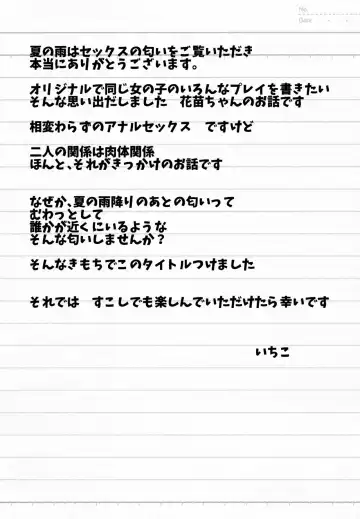 No.
Date
夏の雨はセックスの匂いをご覧いただき
本当にありがとうございます。
オリジナルで同じ女の子のいろんなプレイを書きたい
そんな思い出だしました 花苗ちゃんのお話です
相変わらずのアナルセックス ですけど
二人の関係は肉体関係
ほんと、それがきっかけのお話です
なぜか、夏の雨降りのあとの匂いって
むわっとして
誰かが近くにいるような
そんな匂いしませんか？
そんなきもちでこのタイトルつけました
それでは すこしでも楽しんでいただけたら幸いです
いちこ